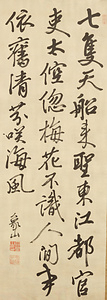 七隻天船来聖東江都官
吏太倥偬梅花不識人間事
依舊清芬咲海風
象山